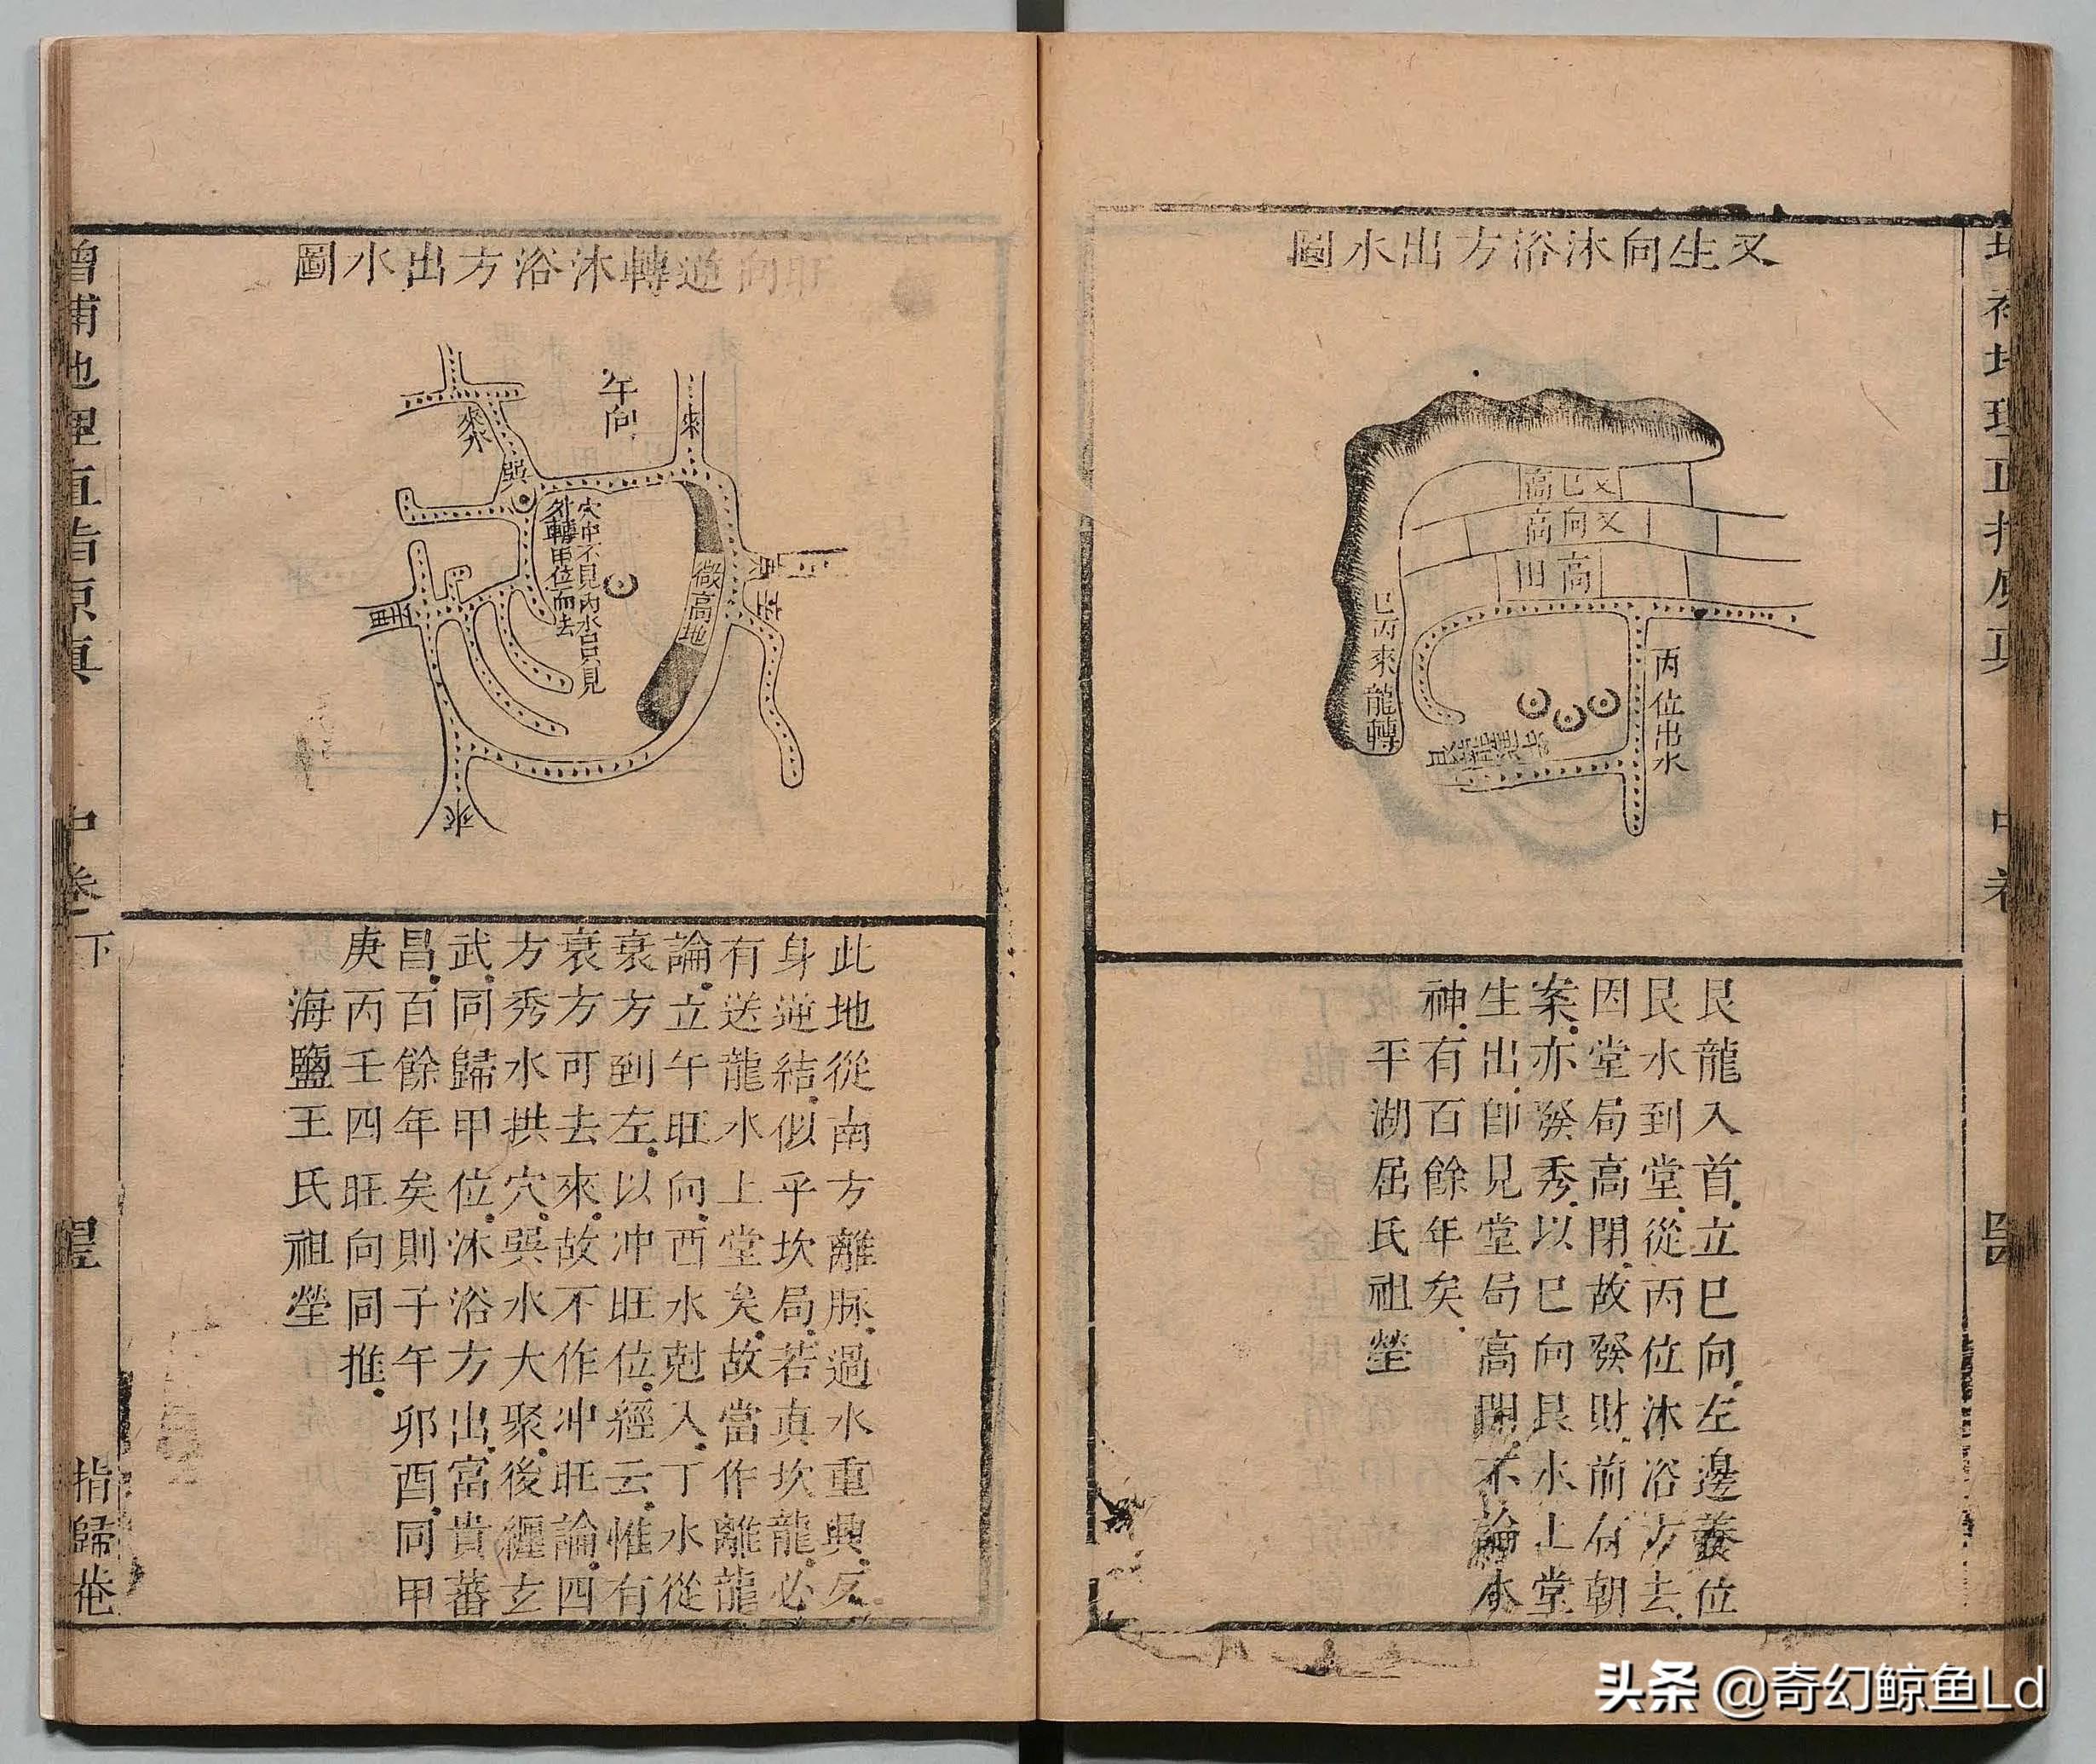 又生向沐浴方出水圖
又巳高
又向高
高田
巳丙來龍轉
丙位出水
艮龍入首立巳向左邊養位
艮水到堂從丙位沐浴方去
因堂局高閉故發財前有朝
案亦發秀以巳向艮水上堂
生出卽見堂局高閉不論水
神有百餘年矣
平湖屈氏祖塋
向逆轉沐浴方出水圖
午向
來
來水
巽
穴中不見內水只見
外轉甲位而去
微高地
庚
辛
來
此地從南方離脉過水重興反
身逆結似平坎局若真坎龍必
有送龍水上堂矣故當作離龍
論立午旺向酉水尅入丁水從
衰方到左以冲旺位經云惟有
衰方可去來故不作冲旺論四
方秀水拱穴巽水大聚後纒玄
武同歸甲位沐浴方出富貴蕃
昌百餘年矣則子午卯酉同甲
庚丙壬四旺向同推
海鹽王氏祖塋
增補地理直指原真
中卷下
指歸菴
头条 @奇幻鲸鱼Ld